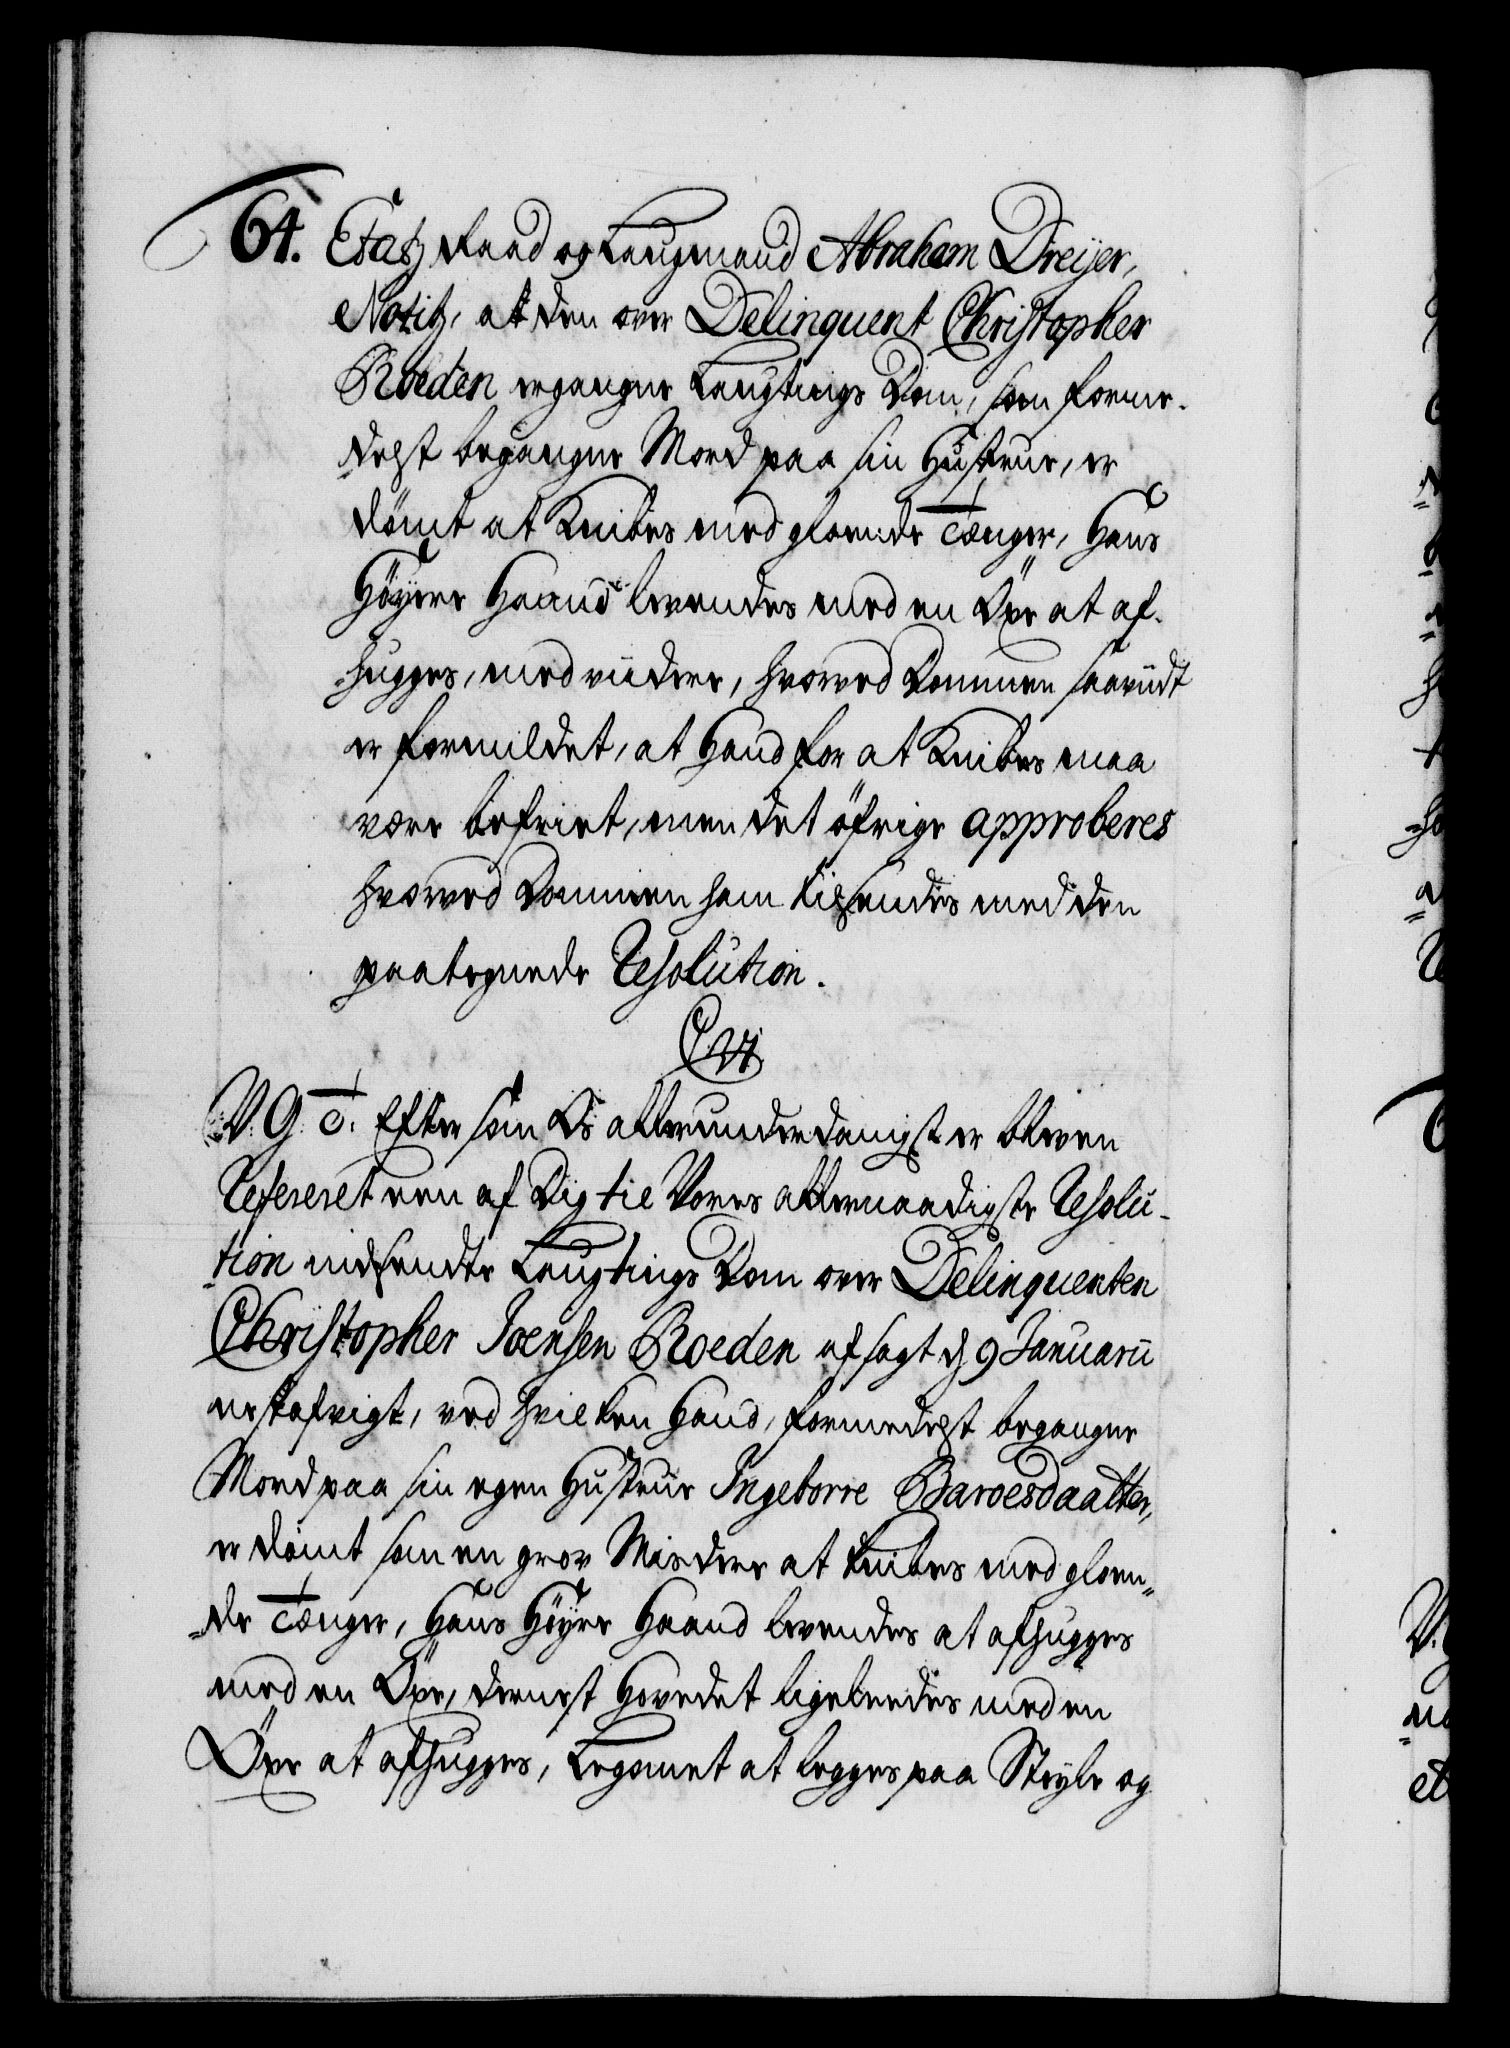 64. Etatz Raad og Laugmand Abraham Dreyer,
Notitz, at den over Delinquent Christopher
Roeden ergangne Laugtings Dom, som forme-
delst begangne Mord paa sin Hustrue, er
dömt at Knibes med gloende Tænger, Hans
Höyere Haand levendes med en Öxe at af-
hugges, med viidere, hvorved Dommen saaviidt
er formildet, at Hand for at Knibes maa
være befriet, men det öfrige approberes
hvorved Dommen ham tilsendes med den
paategnede Resolution.
C. VI.
V. G. T. Eftersom Os allerunderdanigst er bleven
Refereret een af Dig til Vores allernaadigste Resolu-
tion indsendte Laugtings Dom over Delinquenten
Christopher Joensen Roeden afsagt d. 9 Januarii
nestafvigt, ved hvilken Hand, formedelst begangne
Mord paa sin egen Hustrue Ingeborre Baroesdaatter,
er dömt som en grov Misdere at knibes med gloen-
de Tænger, Hans Höyre Haand levendes at afhugges
med en Öxe, dernest Hovedet ligeleedes med en
Öxe at afhugges, Legemet at legges paa Steyle og